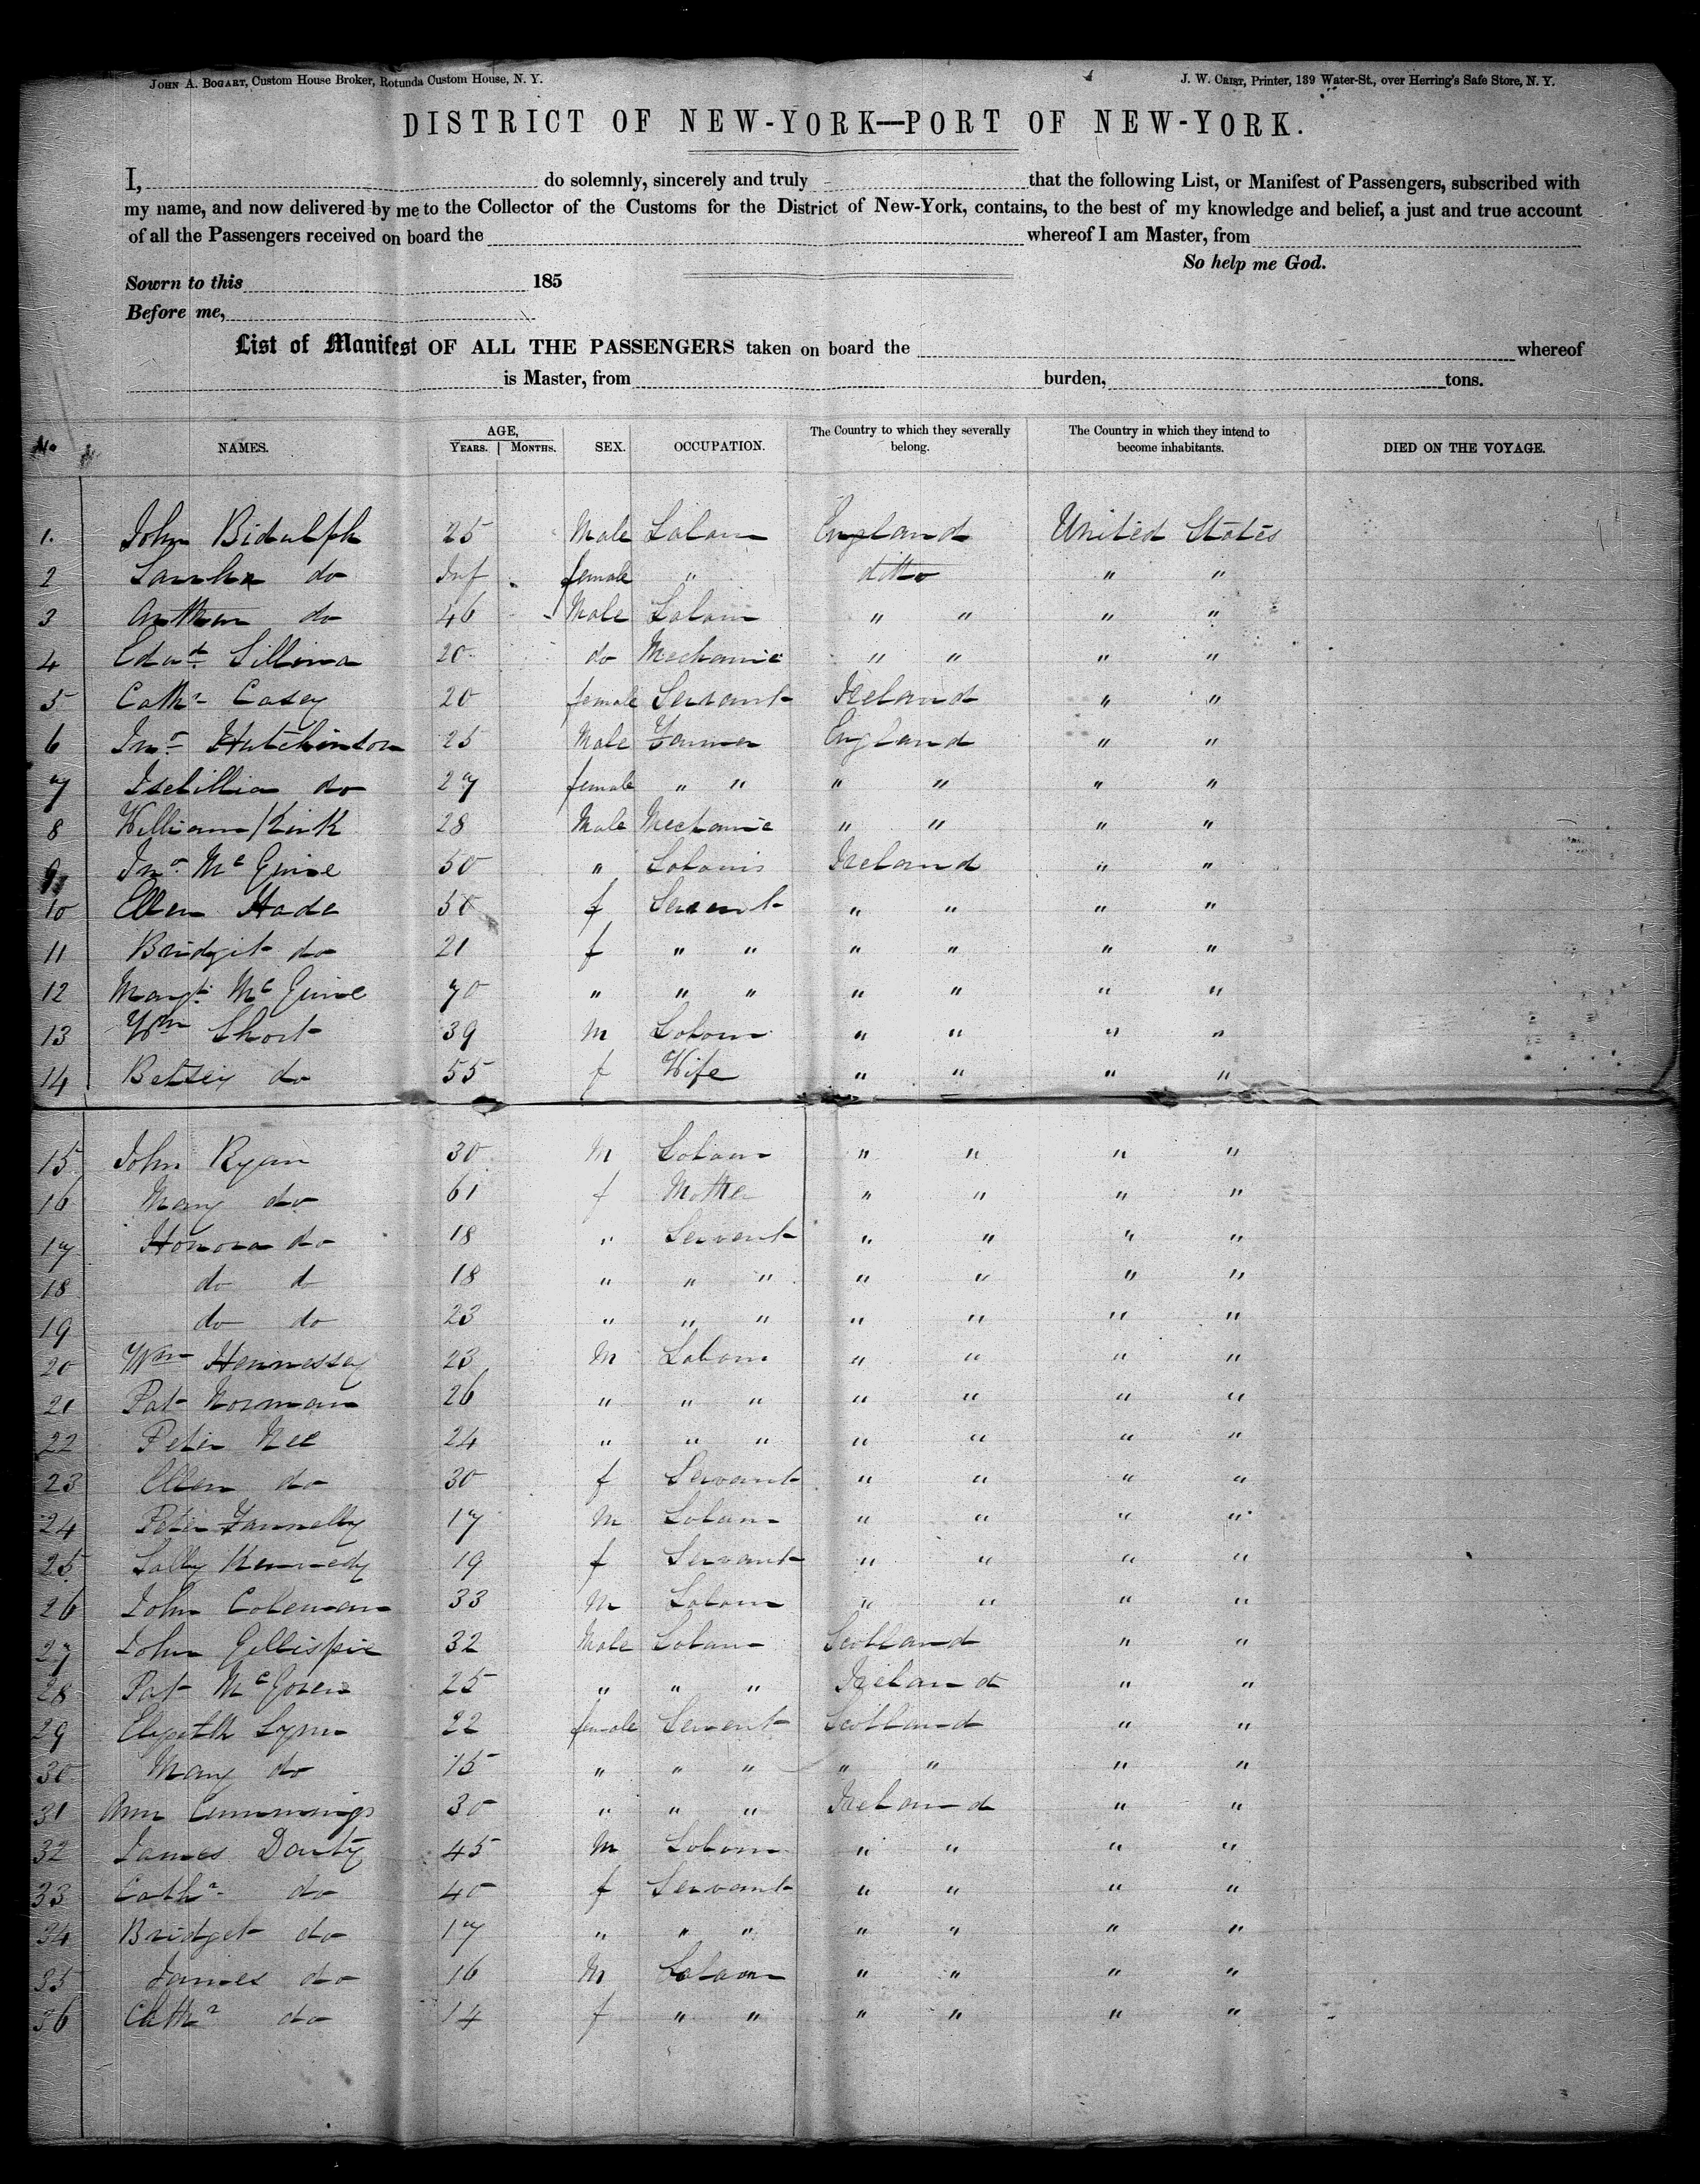 JOHN A. BOGART, Custom House Broker, Rotunda Custom House, N. Y.
J. W. CRIST, Printer, 139 Water-St., over Herring's Safe Store, N. Y.
DISTRICT OF NEW-YORK—PORT OF NEW-YORK.
I, do solemnly, sincerely and truly that the following List, or Manifest of Passengers, subscribed with
my name, and now delivered by me to the Collector of the Customs for the District of New-York, contains, to the best of my knowledge and belief, a just and true account
of all the Passengers received on board the whereof I am Master, from
So help me God.
Sowrn to this 185
Before me,
List of Manifest OF ALL THE PASSENGERS taken on board the whereof
is Master, from burden, tons.
No NAMES. AGE, YEARS. MONTHS. SEX. OCCUPATION. The Country to which they severally belong. The Country in which they intend to become inhabitants. DIED ON THE VOYAGE.
1. John Bidulph 25 Male England United States
2 do Inf female " ditto " "
3 do 46 Male " " " "
4 Edwd 20 do Mechanic " " " "
5 Cathr Casey 20 female Servant Ireland " "
6 Jno Hutchinson 25 Male Farmer England " "
7 Isebillia do 27 female " " " " " "
8 William Kirk 28 Male Mechanic " " " "
9 Jno McGuire 50 " Ireland " "
10 Ellen Hade 50 f Servent " " " "
11 Bridgit do 21 f " " " " " "
12 Margt McGuire 70 " " " " " " "
13 Wm Short 39 M Labour " " " "
14 Betsey do 55 f Wife " " " "
15 John Ryan 30 M Labour " " " "
16 Mary do 61 f Mother " " " "
17 Honora do 18 " Servent " " " "
18 do do 18 " " " " " " "
19 do do 23 " " " " " " "
20 Wm Hennessey 23 M Labour " " " "
21 Pat Norman 26 " " " " " " "
22 Peter Nee 24 " " " " " " "
23 Ellen do 30 f Servant " " " "
24 Peter Fannelly 17 M Labour " " " "
25 Sally Kennedy 19 f Servant " " " "
26 John Coleman 33 M Labour " " " "
27 John Gillispie 32 Male Labour Scotland " "
28 Pat 25 " " " Ireland " "
29 Lynn 22 female Servent Scotland " "
30 Mary do 15 " " " " " " "
31 Ann Cummings 30 " " " Ireland " "
32 James Douty 45 M Labour " " " "
33 Cathr do 40 f Servant " " " "
34 Bridget do 17 " " " " " " "
35 James do 16 M Labour " " " "
36 Cathr do 14 f " " " " " "